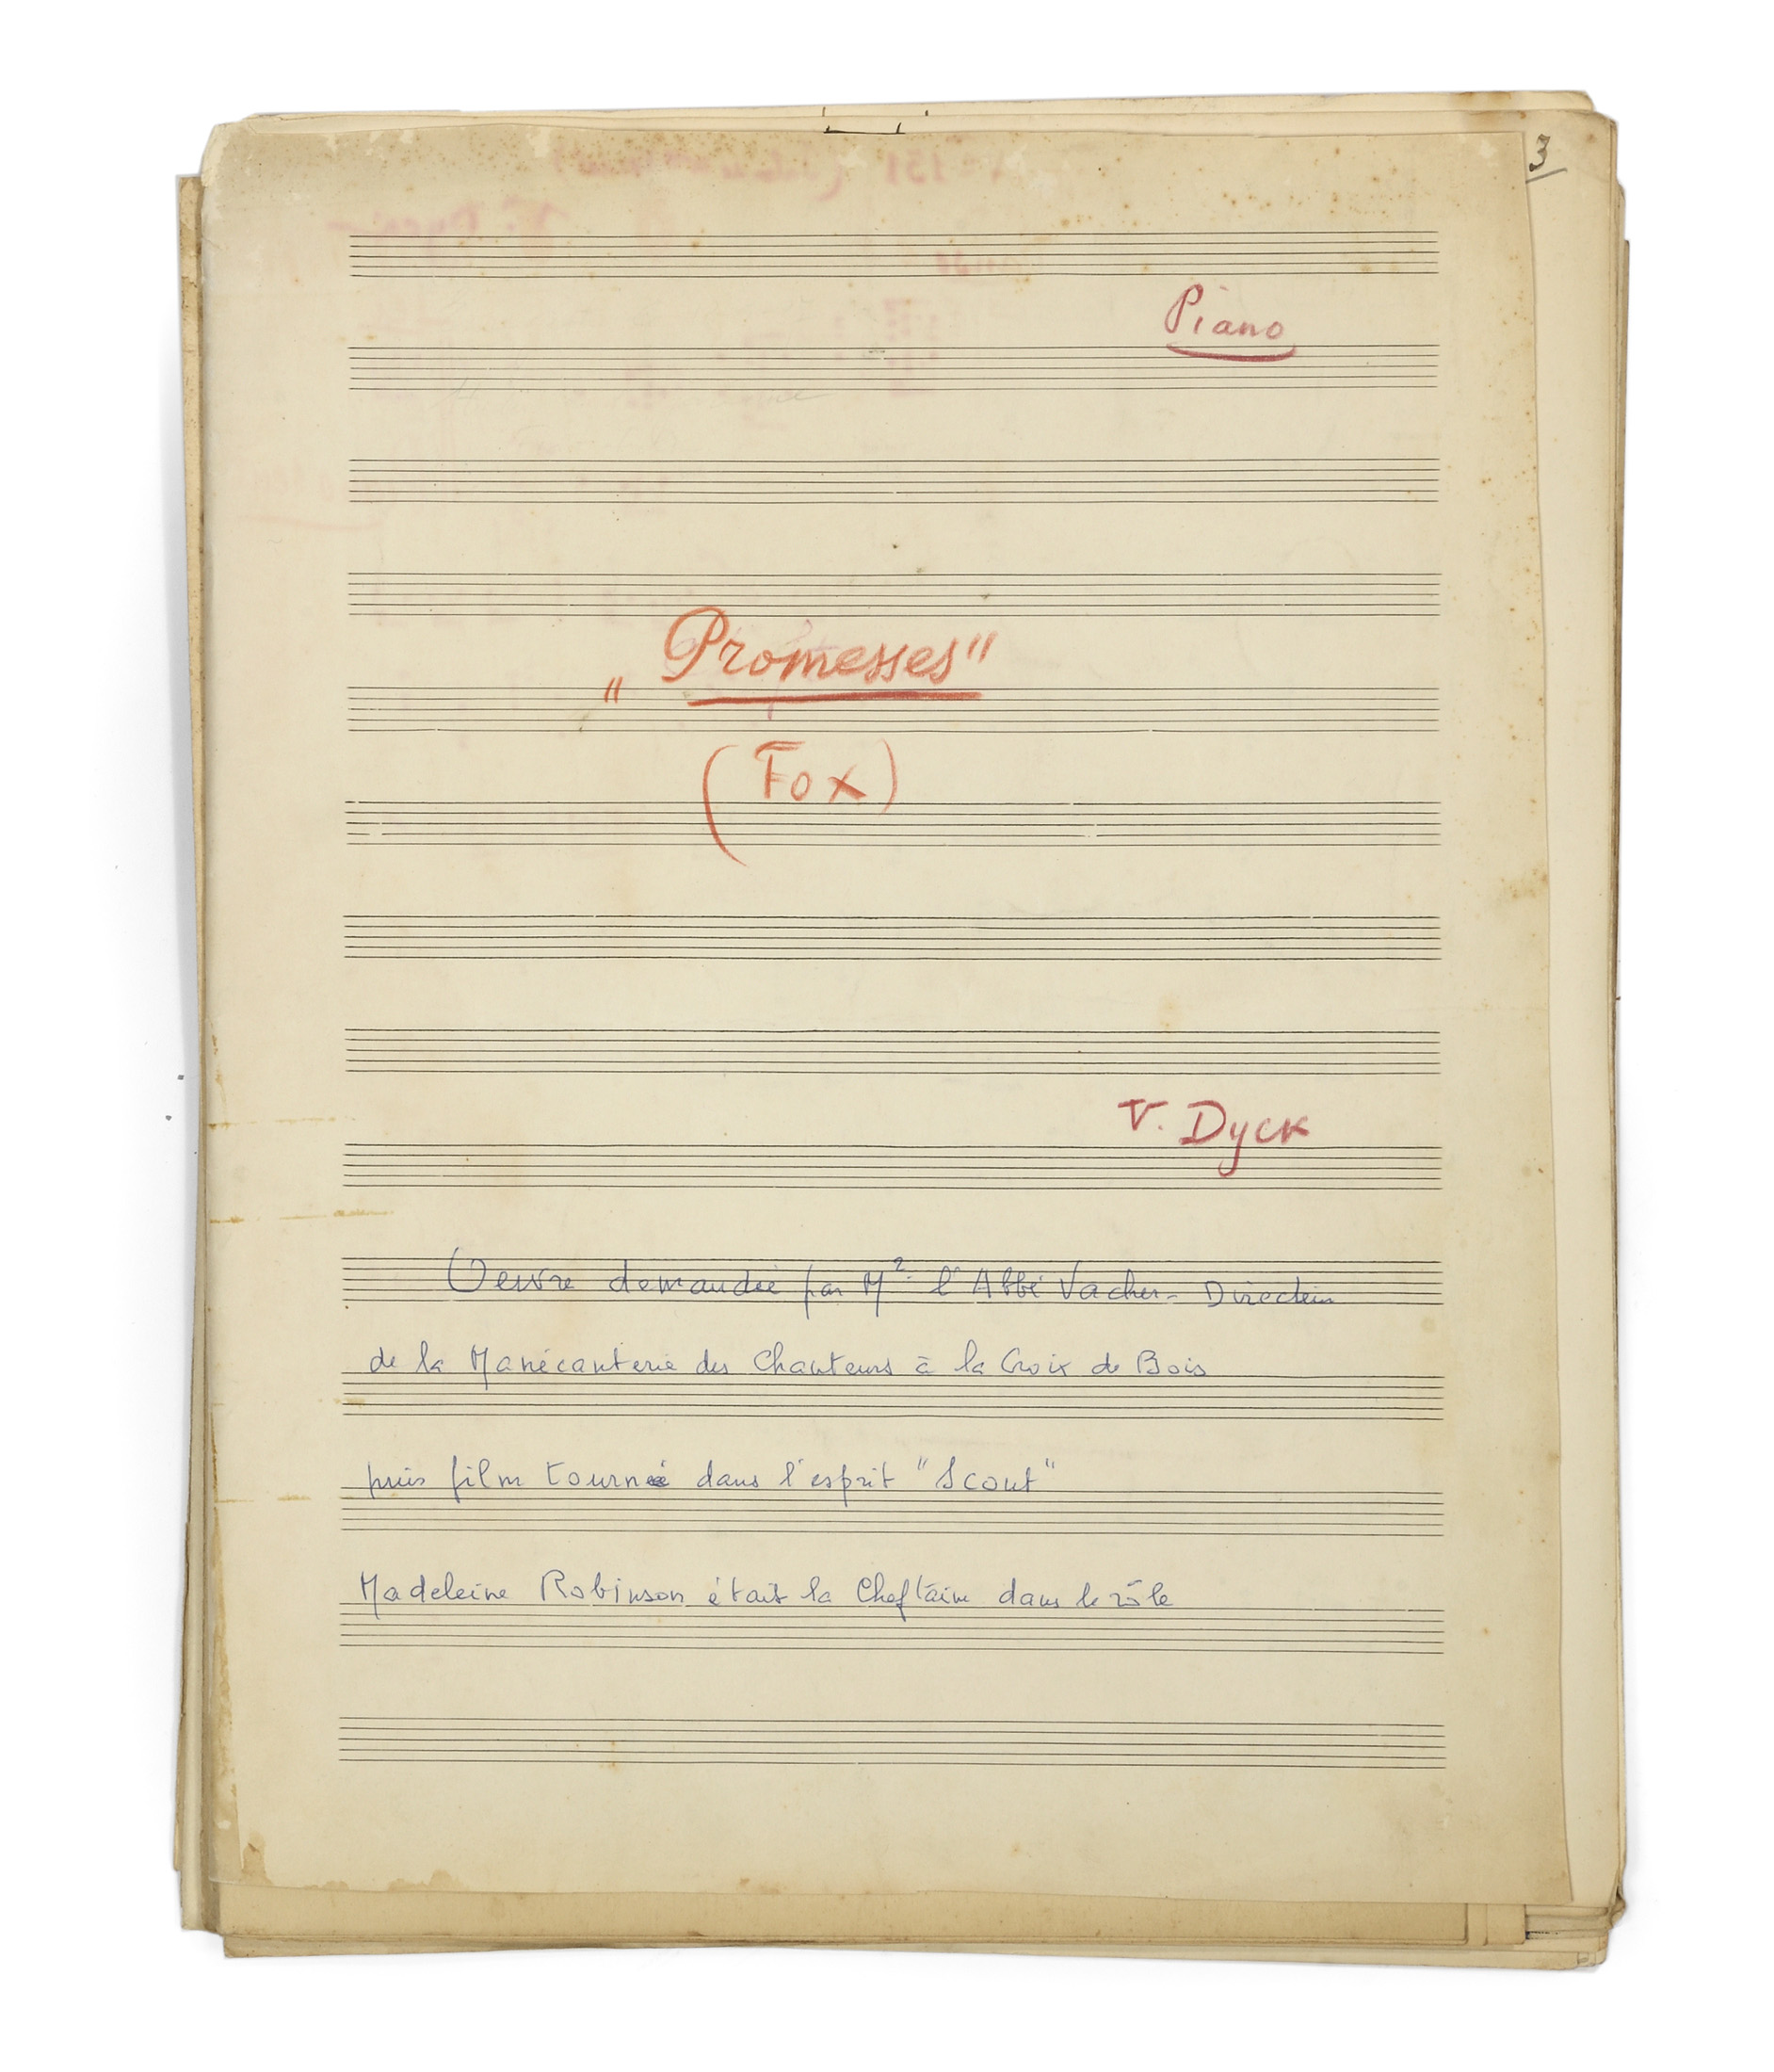 3
Piano
„ Promesses"
(Fox)
V. Dyck
Oeuvre demandée par Mr. l'Abbé Vacher - Directeur
de la Manécanterie des Chanteurs à la Croix de Bois
puis film tourné dans l'esprit "Scout"
Madeleine Robinson était la Cheftaine dans le rôle